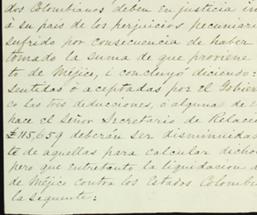 dos Colombianos deben en justicia in
á su pais de los perjuicios pecuniari
sufrido por consecuencia de haber
tomado la suma de que proviene
to de Méjico, i concluyó diciendo:
sentidas ó aceptadas por el Gobier
co las tres deducciones, ó algunas de l
hace el Señor Secretario de Relacio
£115659 deberán ser disminuidas
te de aquellas para calcular dicho
pero que entretanto la liquidacion d
de Méjico contra los Estados Colombi
la siguiente: